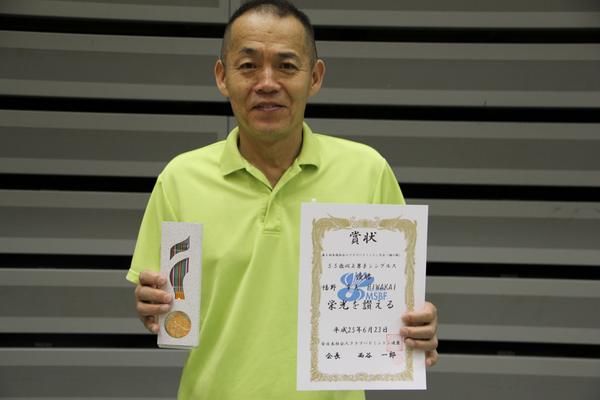 賞状
55歳以上男子シングルス
優勝
HIWAKAI
MSBF
栄光を讃える
平成25年6月23日
会長 西谷 一郎